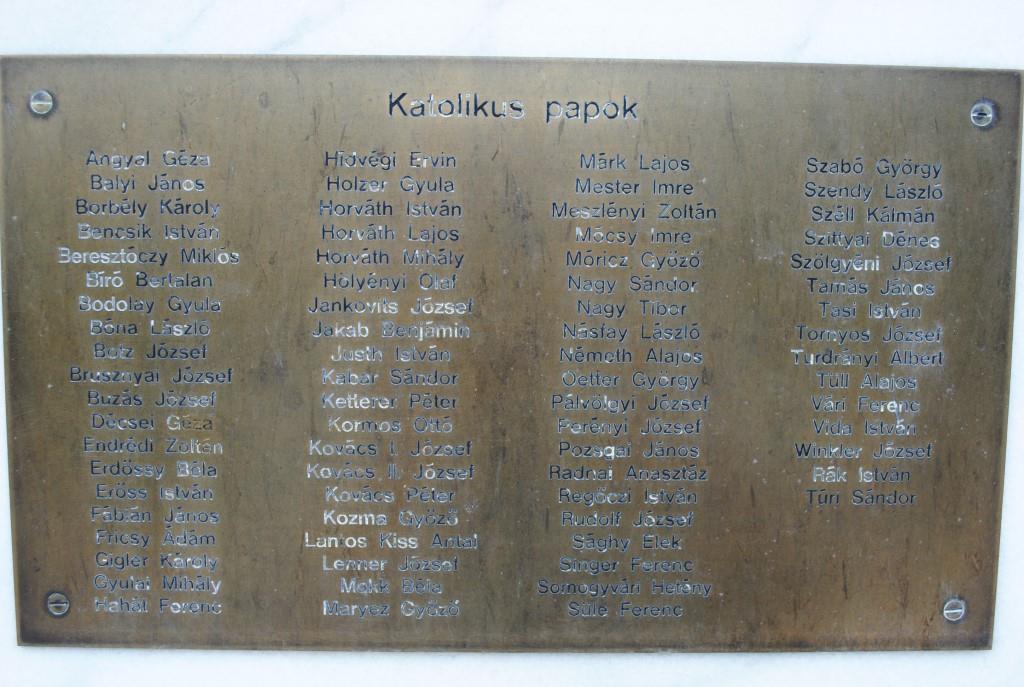 Katolikus papok
Angyal Géza
Balyi János
Borbély Károly
Bencsik István
Beresztóczy Miklós
Bíró Bertalan
Bodolay Gyula
Bóna László
Botz József
Brusznyai József
Buzás József
Décsei Géza
Endrédi Zoltán
Erdössy Béla
Eröss István
Fábián János
Fricsy Ádám
Gigler Károly
Gyulai Mihály
Hahát Ferenc
Hídvégi Ervin
Holzer Gyula
Horváth István
Horváth Lajos
Horváth Mihály
Hölyényi Olaf
Jankovits József
Jakab Benjámin
Justh István
Kabar Sándor
Ketterer Péter
Kormos Ottó
Kovács I. József
Kovács II. József
Kovács Péter
Kozma Győző
Lantos Kiss Antal
Lenner József
Makk Béla
Maryez Győző
Márk Lajos
Mester Imre
Meszlényi Zoltán
Mócsy Imre
Móricz Győző
Nagy Sándor
Nagy Tibor
Násfay László
Németh Alajos
Oetter György
Pálvölgyi József
Perényi József
Pozsgai János
Radnai Anasztáz
Regőczi István
Rudolf József
Sághy Elek
Singer Ferenc
Somogyvári Hetény
Süle Ferenc
Szabó György
Szendy László
Széll Kálmán
Szittyai Dénes
Szölgyéni József
Tamás János
Tasi István
Tornyos József
Turdrányi Albert
Tüll Alajos
Vári Ferenc
Vida István
Winkler József
Rák István
Túri Sándor